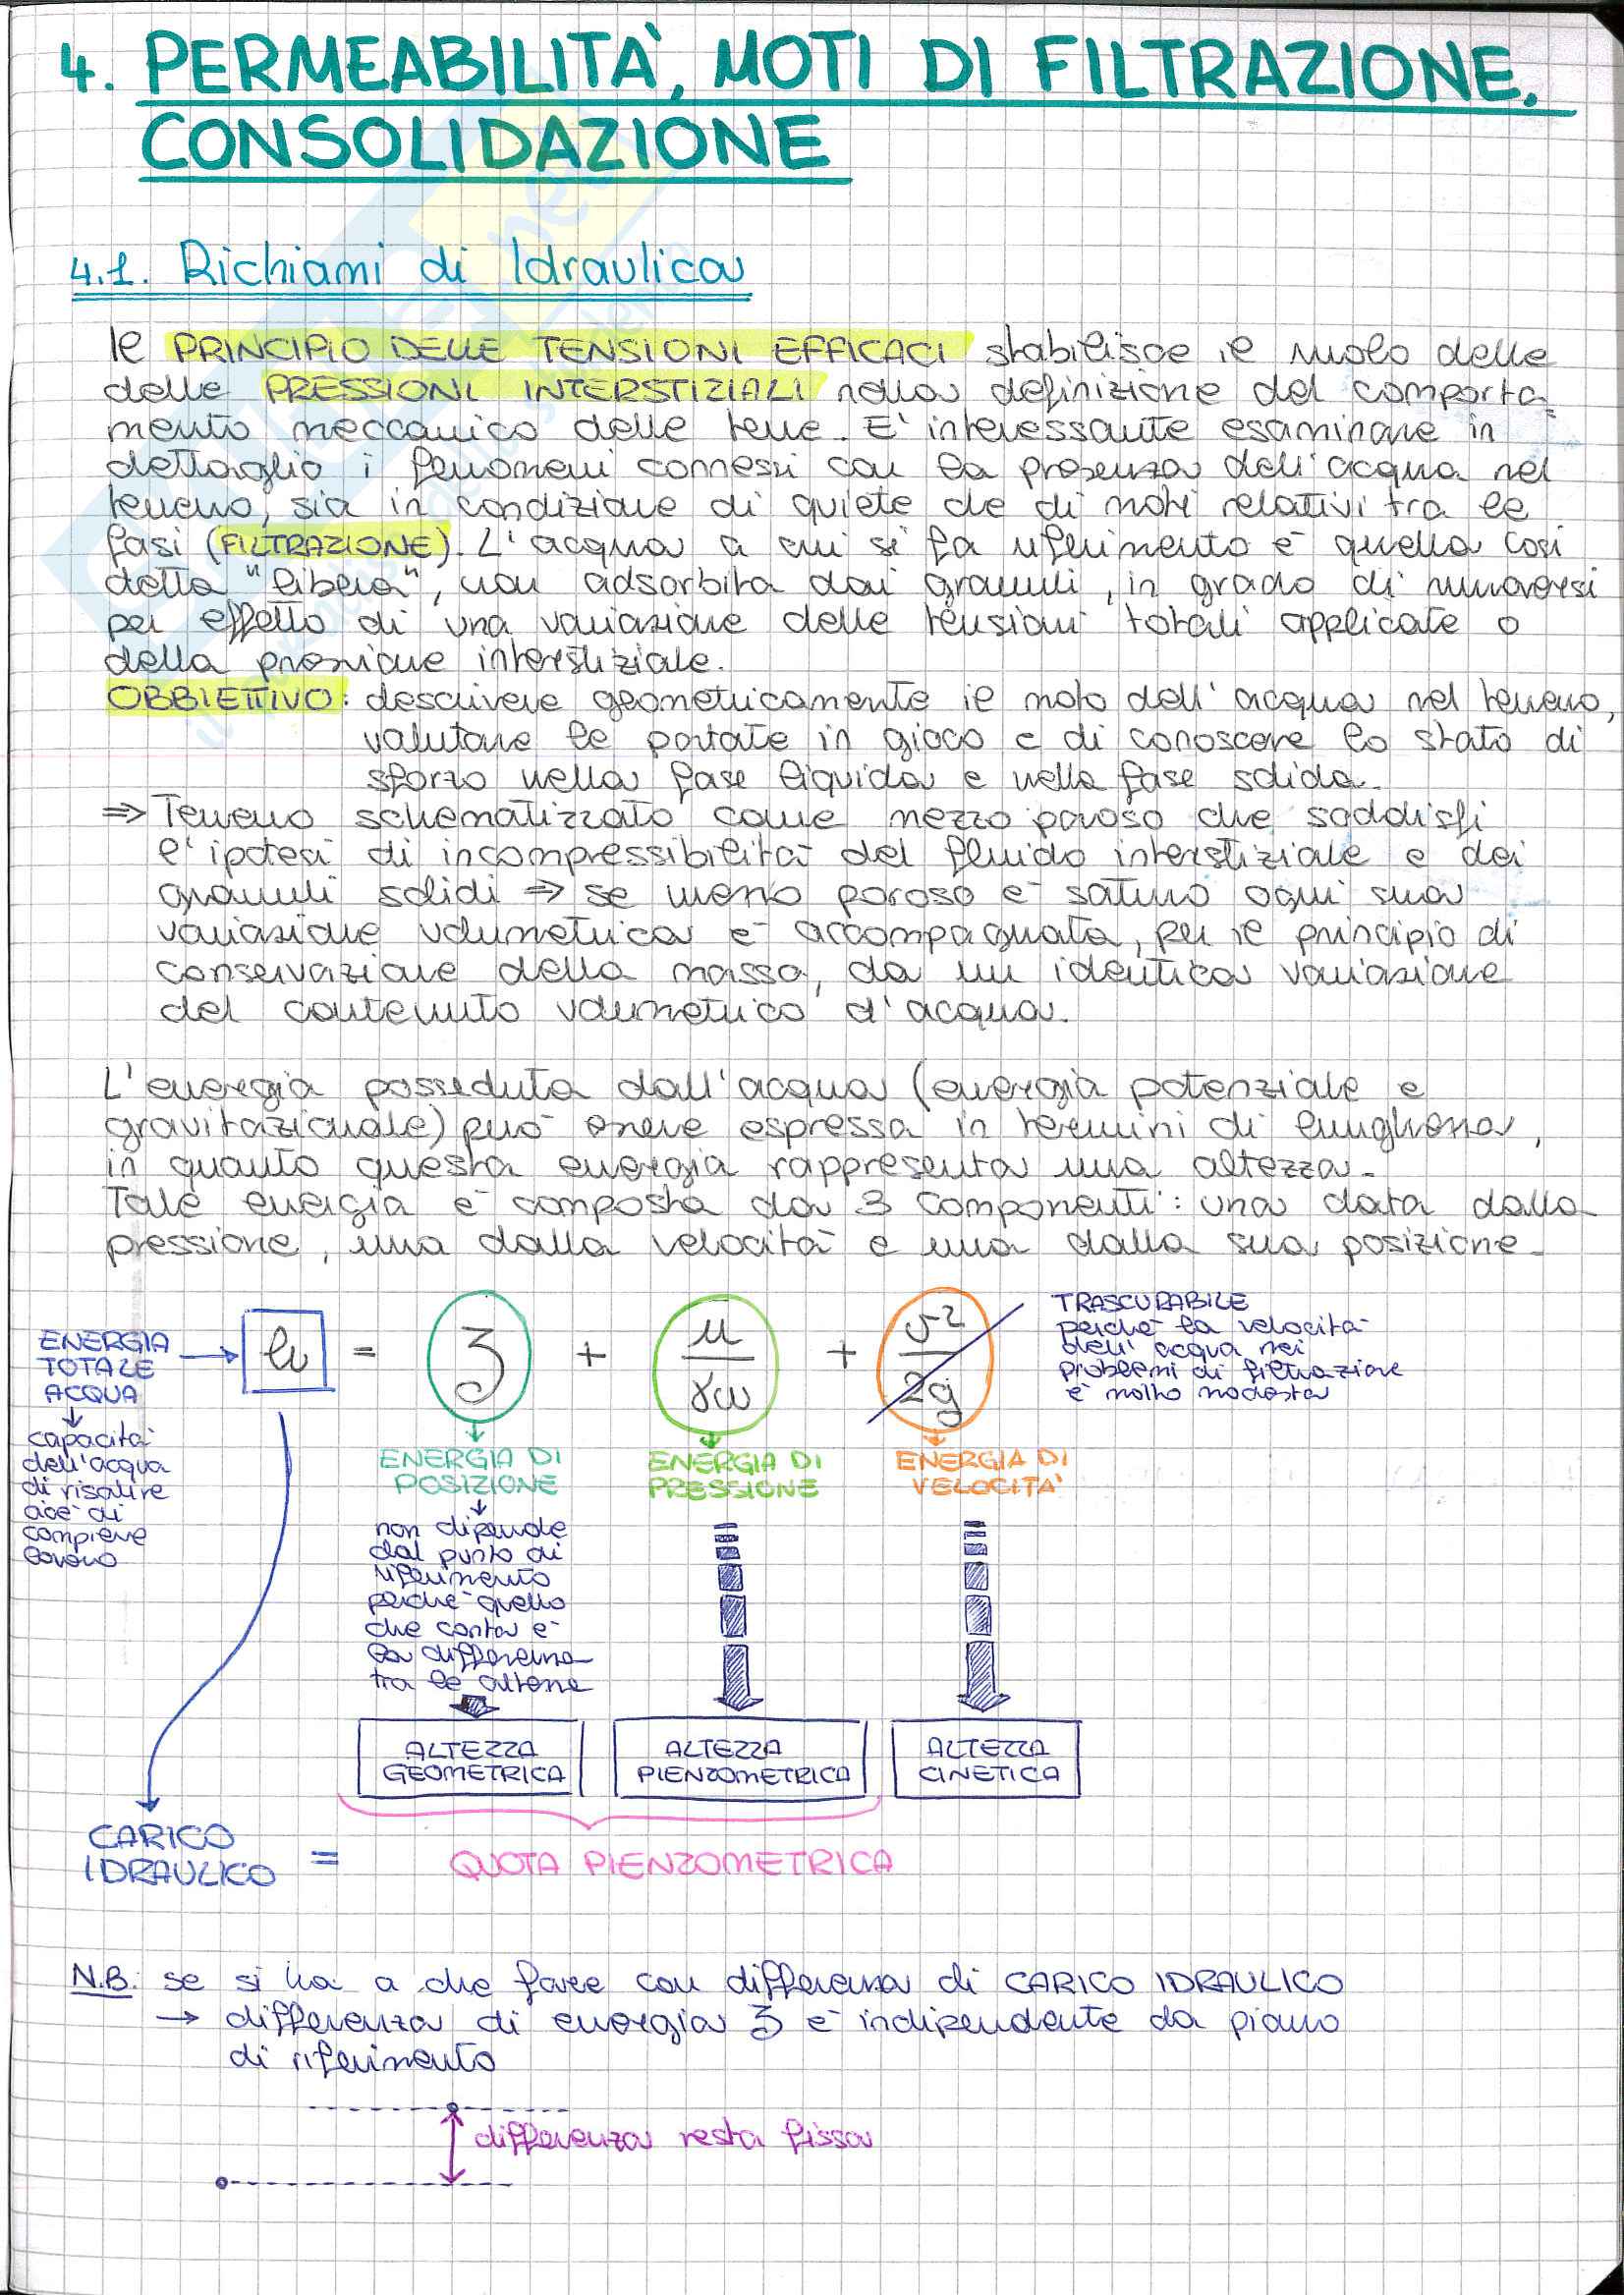 4. PERMEABILITÀ, MOTI DI FILTRAZIONE,
CONSOLIDAZIONE
4.1. Richiami di Idraulica
Il PRINCIPIO DELLE TENSIONI EFFICACI stabilisce il ruolo delle
delle PRESSIONI INTERSTIZIALI nella definizione del comporta_
mento meccanico delle terre. E' interessante esaminare in
dettaglio i fenomeni connessi con la presenza dell'acqua nel
terreno, sia in condizione di quiete che di moti relativi tra le
fasi (FILTRAZIONE). L'acqua a cui si fa riferimento è quella così
detta "libera", non adsorbita dai granuli, in grado di muoversi
per effetto di una variazione delle tensioni totali applicate o
della pressione interstiziale.
OBBIETTIVO: descrivere geometricamente il moto dell'acqua nel terreno,
valutare le portate in gioco e di conoscere lo stato di
sforzo nella fase liquida e nella fase solida.
⇒ Terreno schematizzato come mezzo poroso che soddisfi
l'ipotesi di incompressibilità del fluido interstiziale e dei
granuli solidi ⇒ se mezzo poroso è saturo ogni sua
variazione volumetrica è accompagnata, per il principio di
conservazione della massa, da un identica variazione
del contenuto volumetrico d'acqua.
L'energia posseduta dall'acqua (energia potenziale e
gravitazionale) può essere espressa in termini di lunghezza,
in quanto questa energia rappresenta una altezza.
Tale energia è composta da 3 componenti: una data dalla
pressione, una dalla velocità e una dalla sua posizione.
ENERGIA TOTALE ACQUA → h = z + u/γw + v²/2g
TRASCURABILE
perché la velocità
dell'acqua nei
problemi di filtrazione
è molto modesta
↓
capacità
dell'acqua
di risalire
cioè di
compiere
lavoro
ENERGIA DI
POSIZIONE
ENERGIA DI
PRESSIONE
ENERGIA DI
VELOCITA'
non dipende
dal punto di
riferimento
perché quello
che conta è
la differenza
tra le altezze
ALTEZZA
GEOMETRICA
ALTEZZA
PIENZOMETRICA
ALTEZZA
CINETICA
CARICO
IDRAULICO = QUOTA PIENZOMETRICA
N.B. se si ha a che fare con differenza di CARICO IDRAULICO
→ differenza di energia z è indipendente da piano
di riferimento
differenza resta fissa